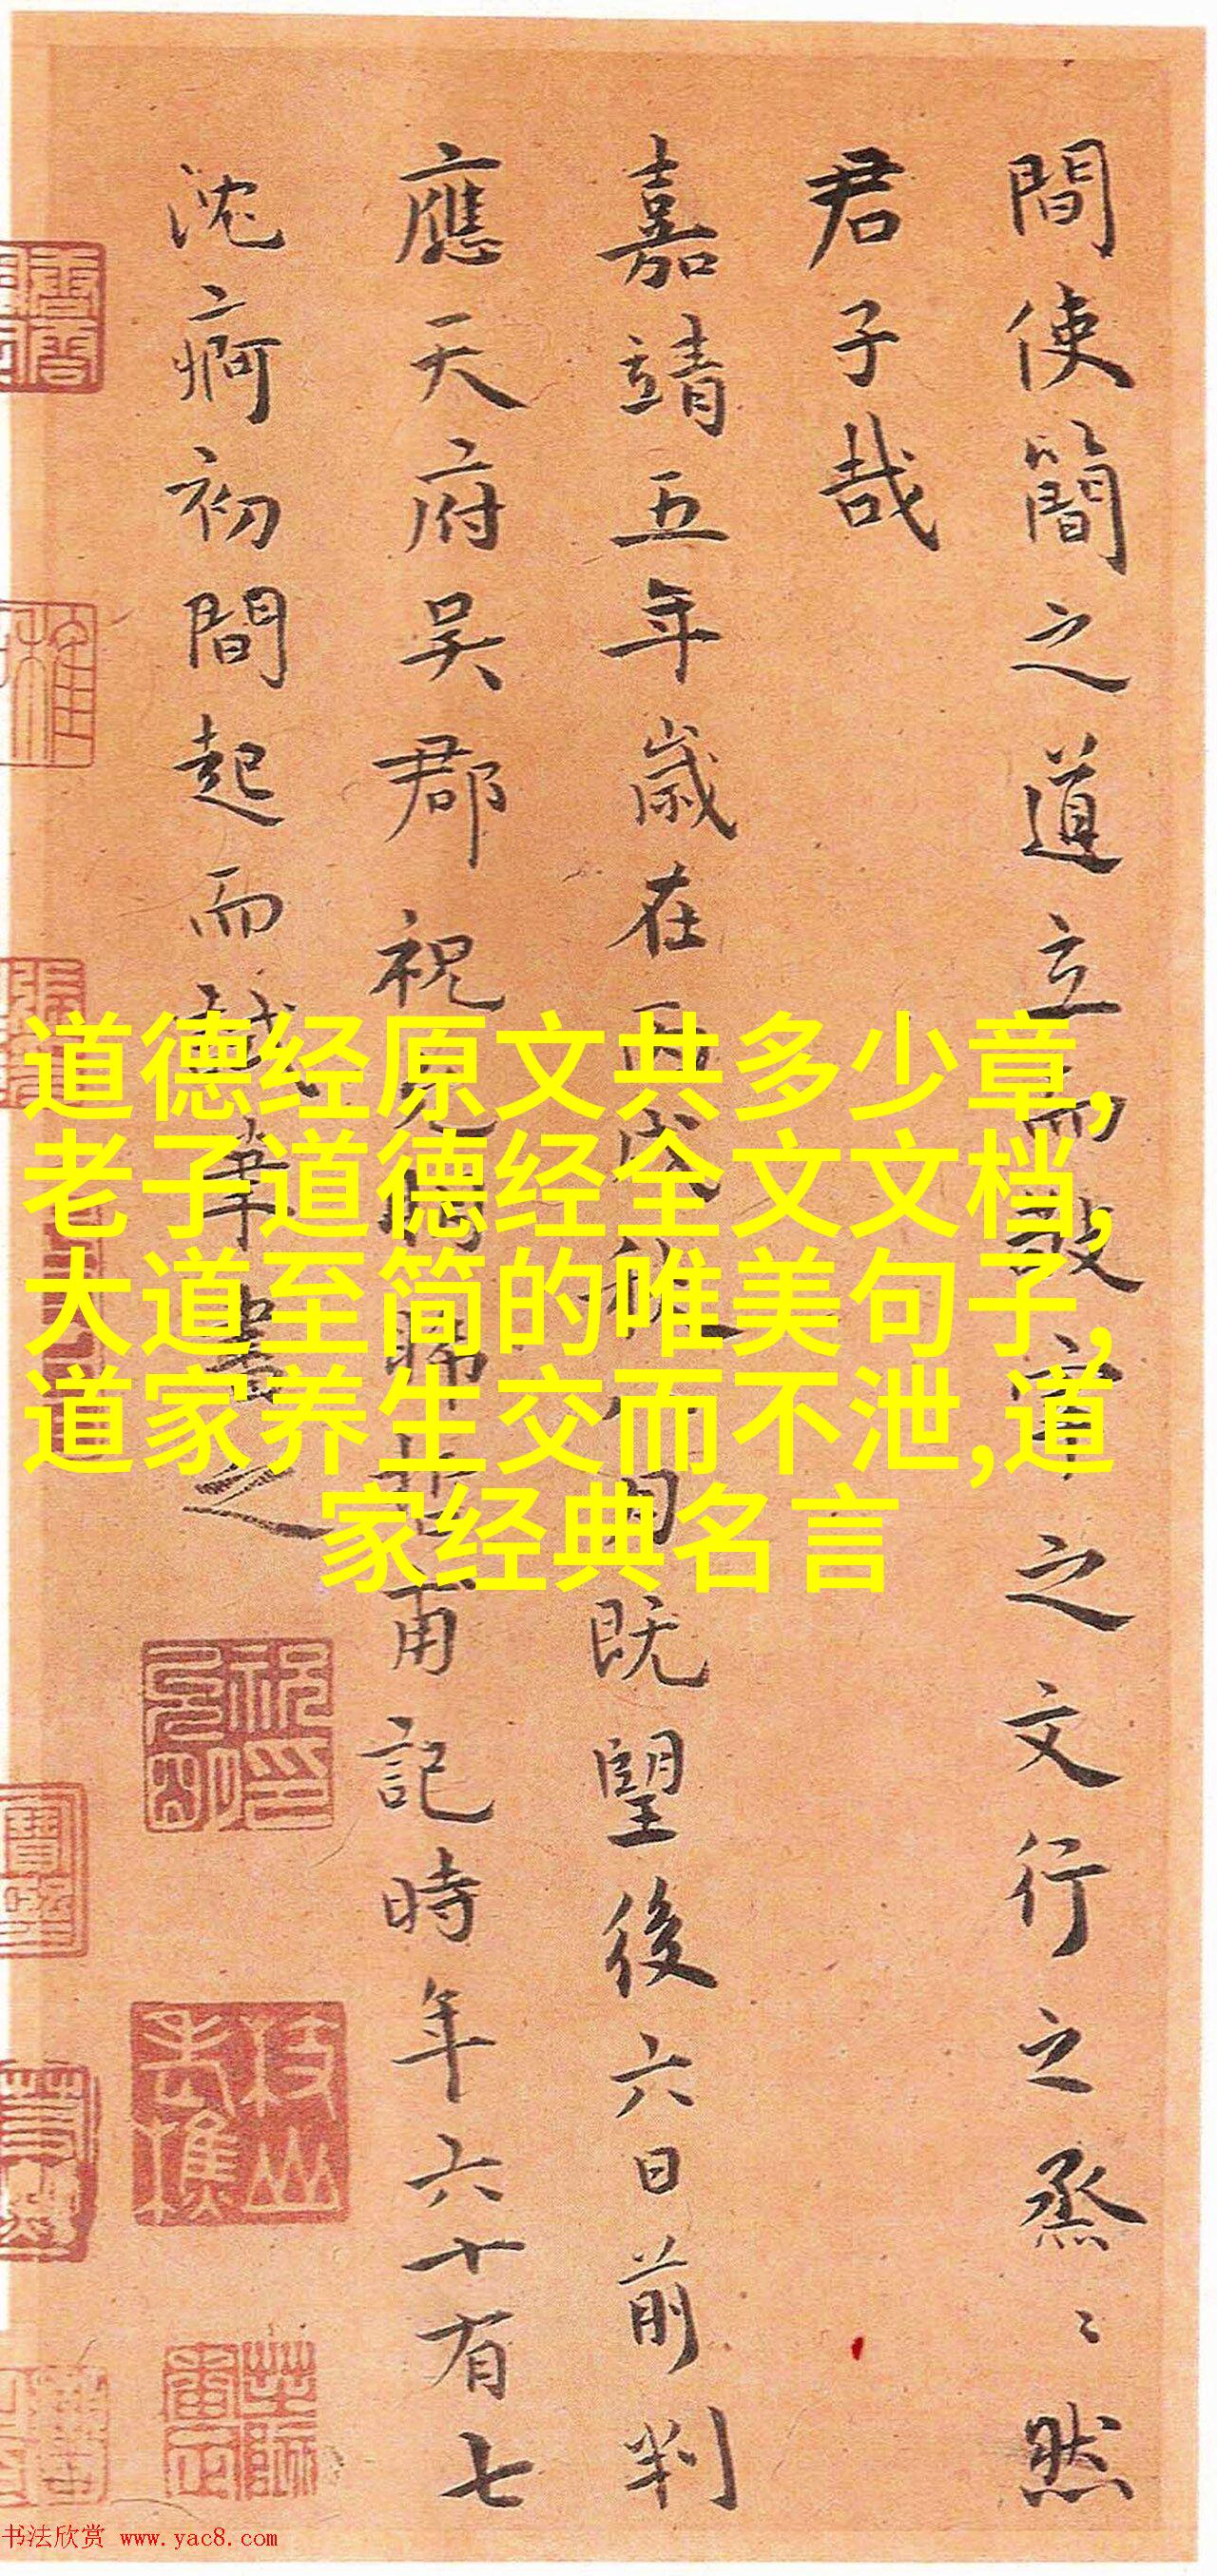 間使簡之道立而敎寧之文行之烝〻然
君子哉
嘉靖五年歲在丙戌秋八月既望後六日前判
應天府吳郡祝允明晞喆甫記時年六十有七
沈痾初間起而試筆書之
道德经原文共多少章,
老子道德经全文文档,
大道至简的唯美句子,
道家养生交而不泄,道
家经典名言
书法欣赏 www.yac8.com